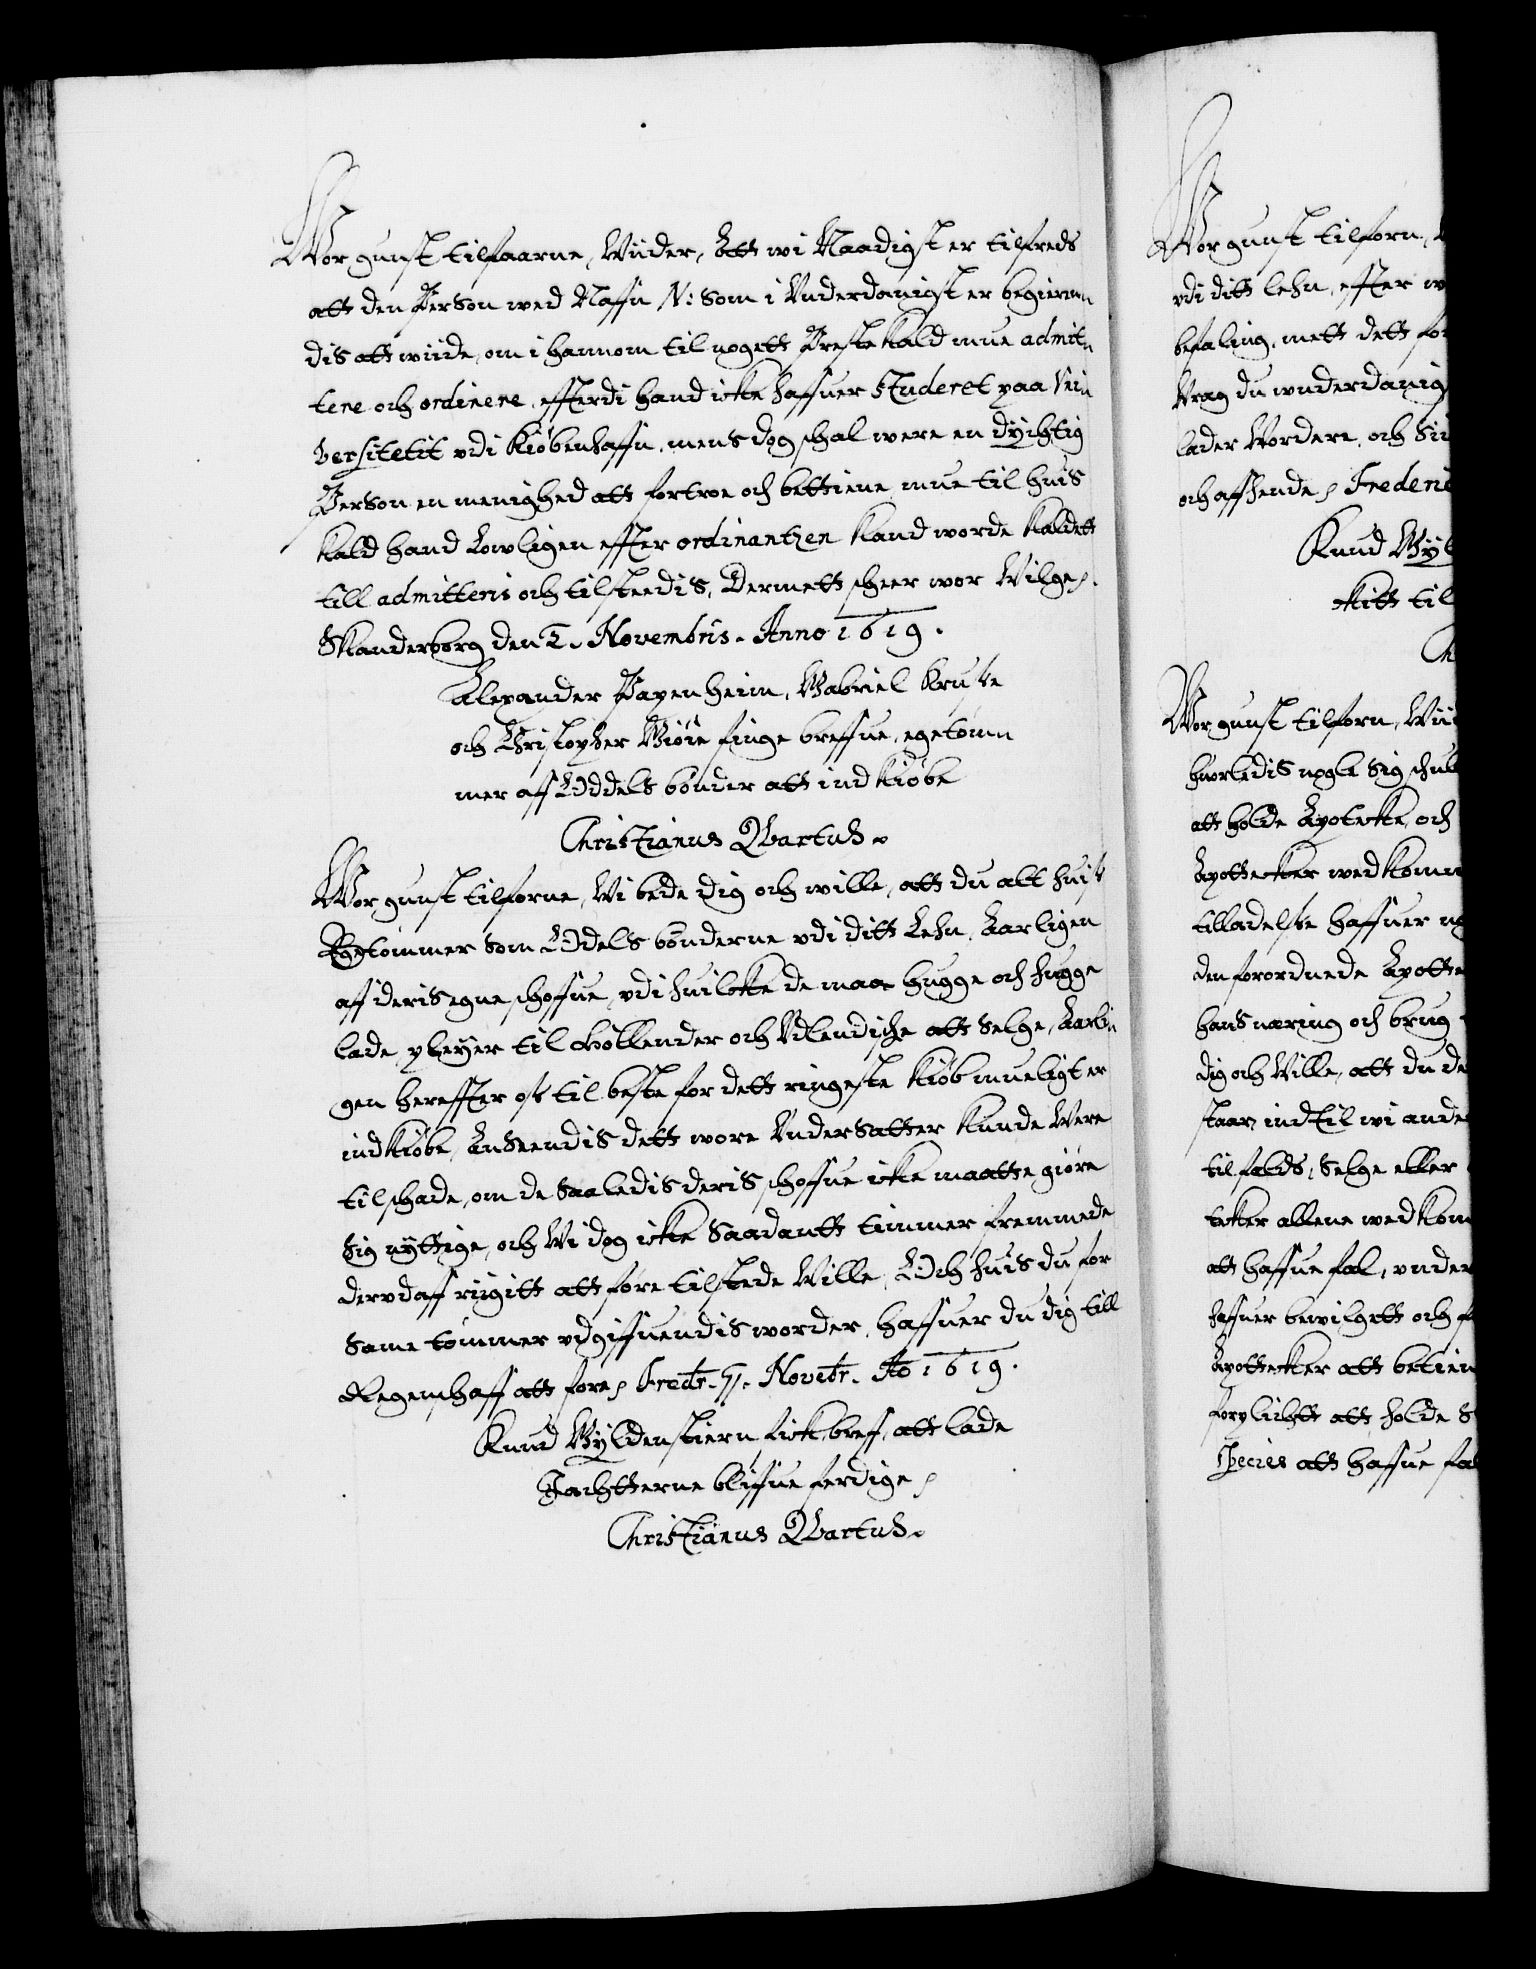 Wor gunst tilfaarne, Wiider, Att wi Naadigst er tilfreds
att den Person wed Naffn N: Som i Vnderdanigst er begieren
dis att wiide, om i hannom til nogett Preste Kald mue admit
tere och ordinere, effterdi hand icke haffuer Studeret paa Vni
versitetit vdi Kiøbenhaffn, mens dog schal were en dychtig
Person en menighed att fortroe och bettiene, mue til huis
Kald hand Lowligen effter ordinantzen Kand worde Kaldett
till admitteris och tilstedis, Dermett scheer wor Wilge,
Skanderborg den 2. Novembris. Anno 1619.
Alexander Papenheim, Gabriel Kruse
och Christopher Giøie finge breffue, egetøm
mer aff Oddels bønder att indkiøbe
Christianus Qvartus.
Wor gunst tilforne, Wi bede dig och wille, att du alt huis
Egetømmer Som Oddels bønderne vdi ditt Lehn, Aarligen
aff deris egne schoffue, vdi huilcke de maa hugge och hugge
lade, pleyer til Hollender och Vdlendische att Selge, Aarli
gen hereffter oss til beste for dett ringeste Kiøb mueligt er
indkiøbe, Anseendis dett wore Vndersatter Kunde Were
til schade, om de Saaledis deris schoffue icke maatte giøre
Sig nyttige, och Wi dog icke Saadantt timmer fremmede
der vdaff riigitt att føre tilstede Wille, Och huis du for
Same tømmer vdgiffuendis worder, haffuer du dig till
Regenschaff att føre, Fredr. 7. Novebr. Ao 1619.
Knud Gyldenstiern fick breff, att lade
Jachtterne bliffue ferdige,
Christianus Qvartus.
Wor gunst tilforn,
vdi ditt lehn, effter
befaling, mett dett
Vrag du wnderdanig
lader Wordere, och
och affsende, Frederi
Knud Gyl
kitt til
Wor gunst tilforn, Wii
huorledis nogle Sig
att holde Apotecke, och
Apottecker wedkom
tilladelse haffuer
den forordnede Apotte
hans næring och brug
dig och Wille, att du
staar, indtil wi ande
til falds, Selge eller
tecker allene wedkom
att haffue fal, vnder
haffuer bewilgett och
Apottecker att betien
forplichtt att holde
Species att haffue fal